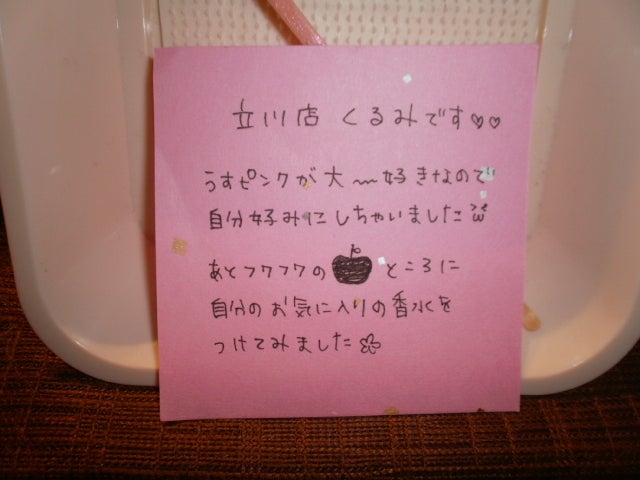 立川店 くるみです♡♡
うすピンクが大〜好きなので
自分好みにしちゃいました
あとフワフワの🍎ところに
自分のお気に入りの香水を
つけてみました